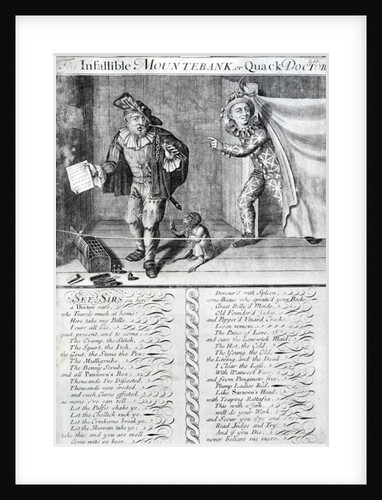 The Infallible MOUNTEBANK, or Quack Doctor
SEE SIRS, see here
a Doctor rare,
who Travels much at home:
Here take my Bills,
I cure all Ills,
past, present, and to come:
The Cramp, the Stitch,
The Squirt, the Itch,
the Gout, the Stone, the Pox;
The Mulligrubs,
The Bonny Scrubs,
and all Pandora's Box;
Thousands I've Dissected,
Thousands new erected,
and such Cures effected,
as none e're can tell.
Let the Palsie shake ye,
Let the Chollick rack ye,
Let the Crinkums break ye,
Let the Murrain take ye;
take this and you are well.
Come wits so keen,
Devour'd with Spleen;
come Beaus who sprain'd your Backs,
Great Belly'd Maids,
Old Founder'd Jades,
and Pepper'd Vizard Cracks.
I soon remove
The Pains of Love,
and cure the Love-sick Maid;
The Hot, the Cold,
The Young, the Old,
the Living, and the Dead.
I Clear the Lass,
With Wainscot Face,
and from Pimginets free,
Plump Ladies Red,
Like Saracen's Head,
with Toaping Rattafia.
This with a Jirk,
will do your Work,
and Scour you o're and o're,
Read, Judge and Try,
And if you Die,
never believe me more.